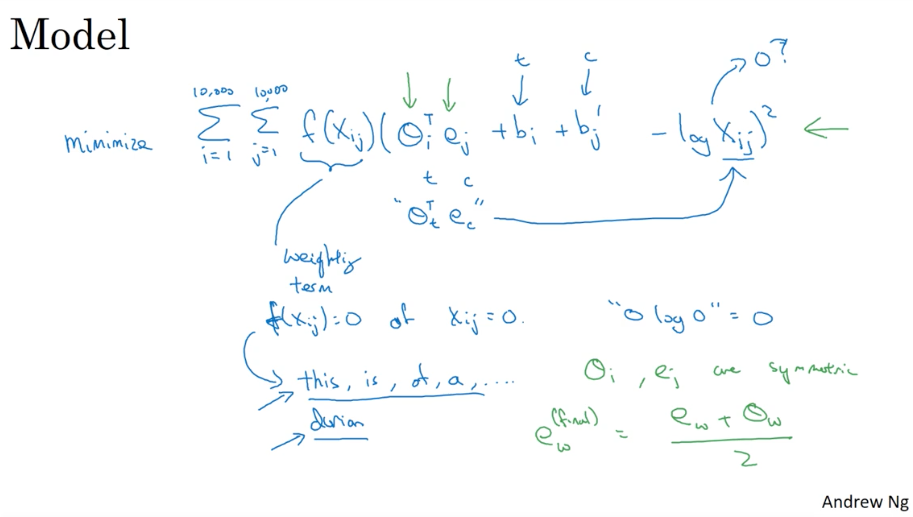 Model
minimize 10,000 Σ i=1 10,000 Σ j=1 f(Xij) (θiᵀ ej + bi + bj' - log Xij)² ←
t c
0?
t c
"θtᵀ ec"
weighting
term
f(Xij)=0 if Xij=0. "0 log 0" = 0
this, is, of, a, ....
durian
θi, ej are symmetric
ew(final) = ew + θw / 2
Andrew Ng